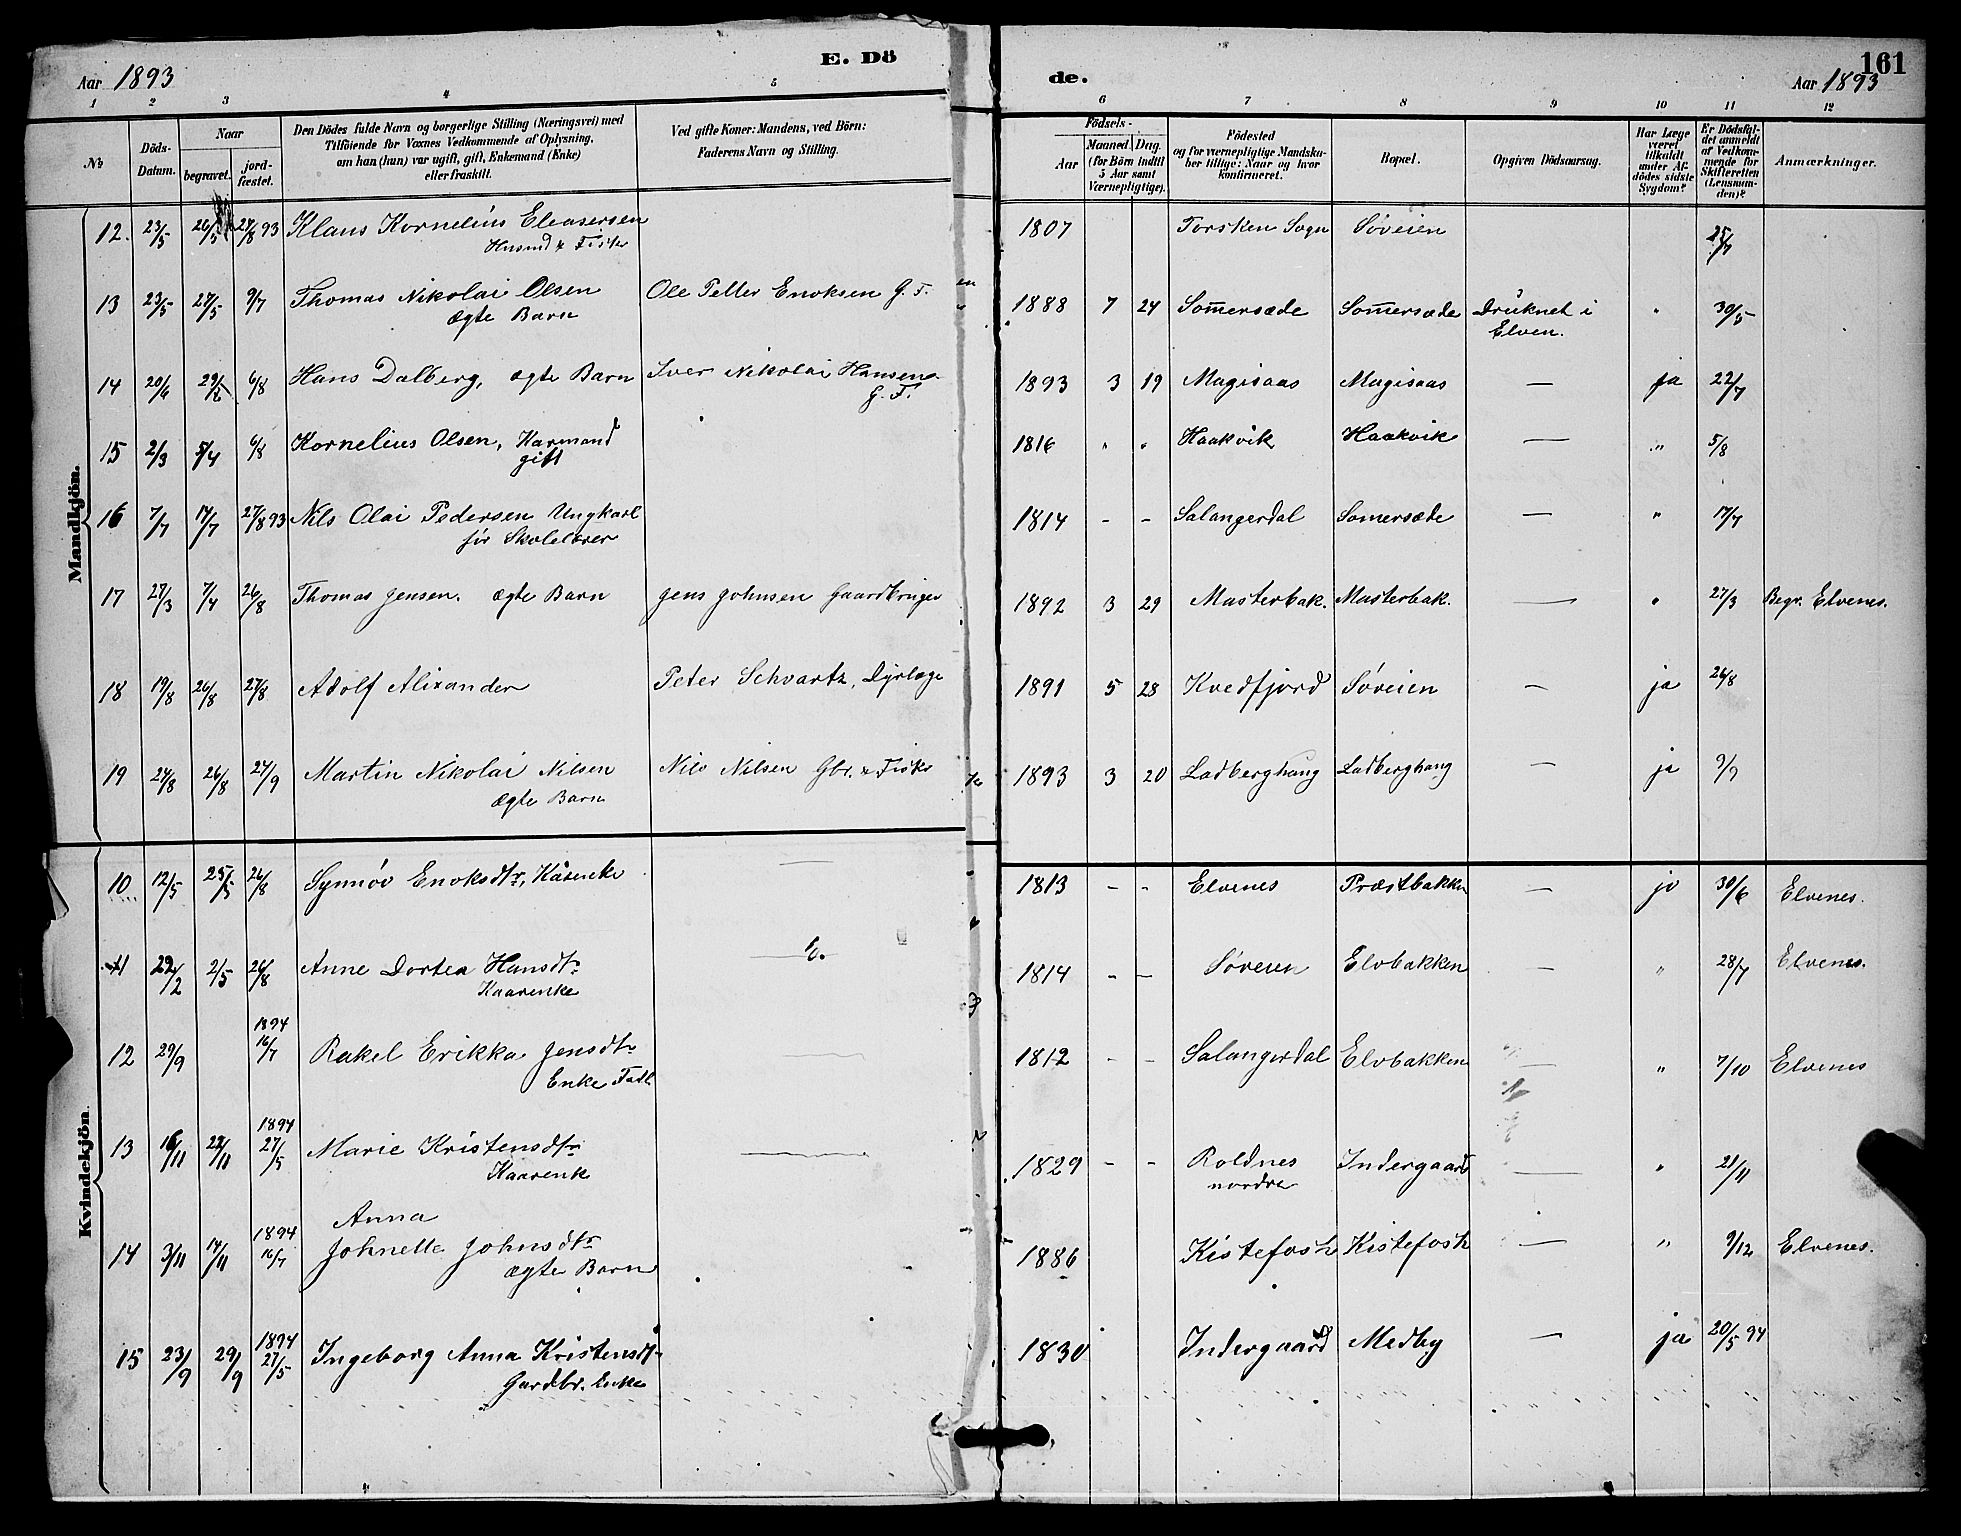 E. Dö
de.
161
Aar 1893
Aar 1893
1 2 3 4 5
6 7 8 9 10 11 12
No
Döds-
Datum.
Naar
begravet.
jord-
fæstet.
Den Dödes fulde Navn og borgerlige Stilling (Næringsvei) med
Tilföiende for Voxnes Vedkommende af Oplysning,
om han (hun) var ugift, gift, Enkemand (Enke)
eller fraskilt.
Ved gifte Koner: Mandens, ved Börn:
Faderens Navn og Stilling.
Födsels-
Aar
Maaned. Dag.
(for Börn indtil
5 Aar samt
Værnepligtige).
Födested
og for værnepligtige Mandska-
ber tillige: Naar og hvor
konfirmeret.
Bopæl.
Opgiven Dödsaarsag.
Har Læge
været
tilkaldt
under Af-
dödes sidste
Sygdom?
Er Dödsfal-
det anmeldt
af Vedkom-
mende for
Skifteretten
(Lensman-
den)?
Anmærkninger.
Mandkjön.
12. 23/5 26/5 27/8 93 Klaus Kornelius Eleasersen 1807 Torsken Sogn Søveien
Husmd & Fisker
13 23/5 27/5 9/7 Thomas Nikolai Olsen Ole Petter Enoksen G. F. 1888 7 24 Somersæde Somersæde Druknet i " 30/5
ægte Barn Elven.
14 20/6 29/6 6/8 Hans Dalberg, ægte Barn Iver Nikolai Hansen 1893 3 19 Magisaas Magisaas — ja 22/7
G. F.
15 2/3 5/4 6/8 Kornelius Olsen, Karmand 1816 " " Haakvik Haakvik — " 5/8
gift
16 7/7 17/7 27/8 93 Nils Olai Pedersen Ungkarl 1814 - - Salangerdal Somersæde — " 17/7
før Skolelærer
17 27/3 7/4 26/8 Thomas Jensen. ægte Barn Jens Johnsen Gaardbruger 1892 3 29 Masterbak. Masterbak. — " 27/3 Begr. Elvenes.
18 19/8 26/8 27/8 Adolf Alixander Peter Schvartz, Dyrlæge 1891 5 28 Kvedfjord Søveien — ja 26/8
19 24/8 26/8 24/9 Martin Nikolai Nilsen Nils Nilsen Gbr. & Fisker 1893 3 20 Ladberghaug Ladberghaug — ja 9/9
ægte Barn
Kvindekjön.
10 12/5 25/5 26/8 Synnøv Enoksdtr, Kårenke — 1813 - - Elvenes Præstbakken — ja 30/6 Elvenes.
11 22/2 2/5 26/8 Anne Dortea Hansdtr — 1814 - - Søveien Elvbakken — " 28/7 Elvenes.
Kaarenke
1894
12 29/9 16/7 Rakel Erikka Jensdtr — 1812 - - Salangerdal Elvbakken — " 7/10 Elvenes
Enke
1894
13 16/11 22/11 27/5 Marie Kristensdtr — 1829 - - Roldnes Indergaard — " 21/11
Kaarenk nordre
Anna
1894
14 3/11 14/11 16/7 Johnette Johnsdtr 1886 Kistefosh Kistefosh — " 9/12 Elvenes.
ægte Barn
1894
15 23/9 29/9 27/5 Ingeborg Anna Kristensdt 1830 Indergaard Medby — ja 20/5 94
Gardbr. Enke